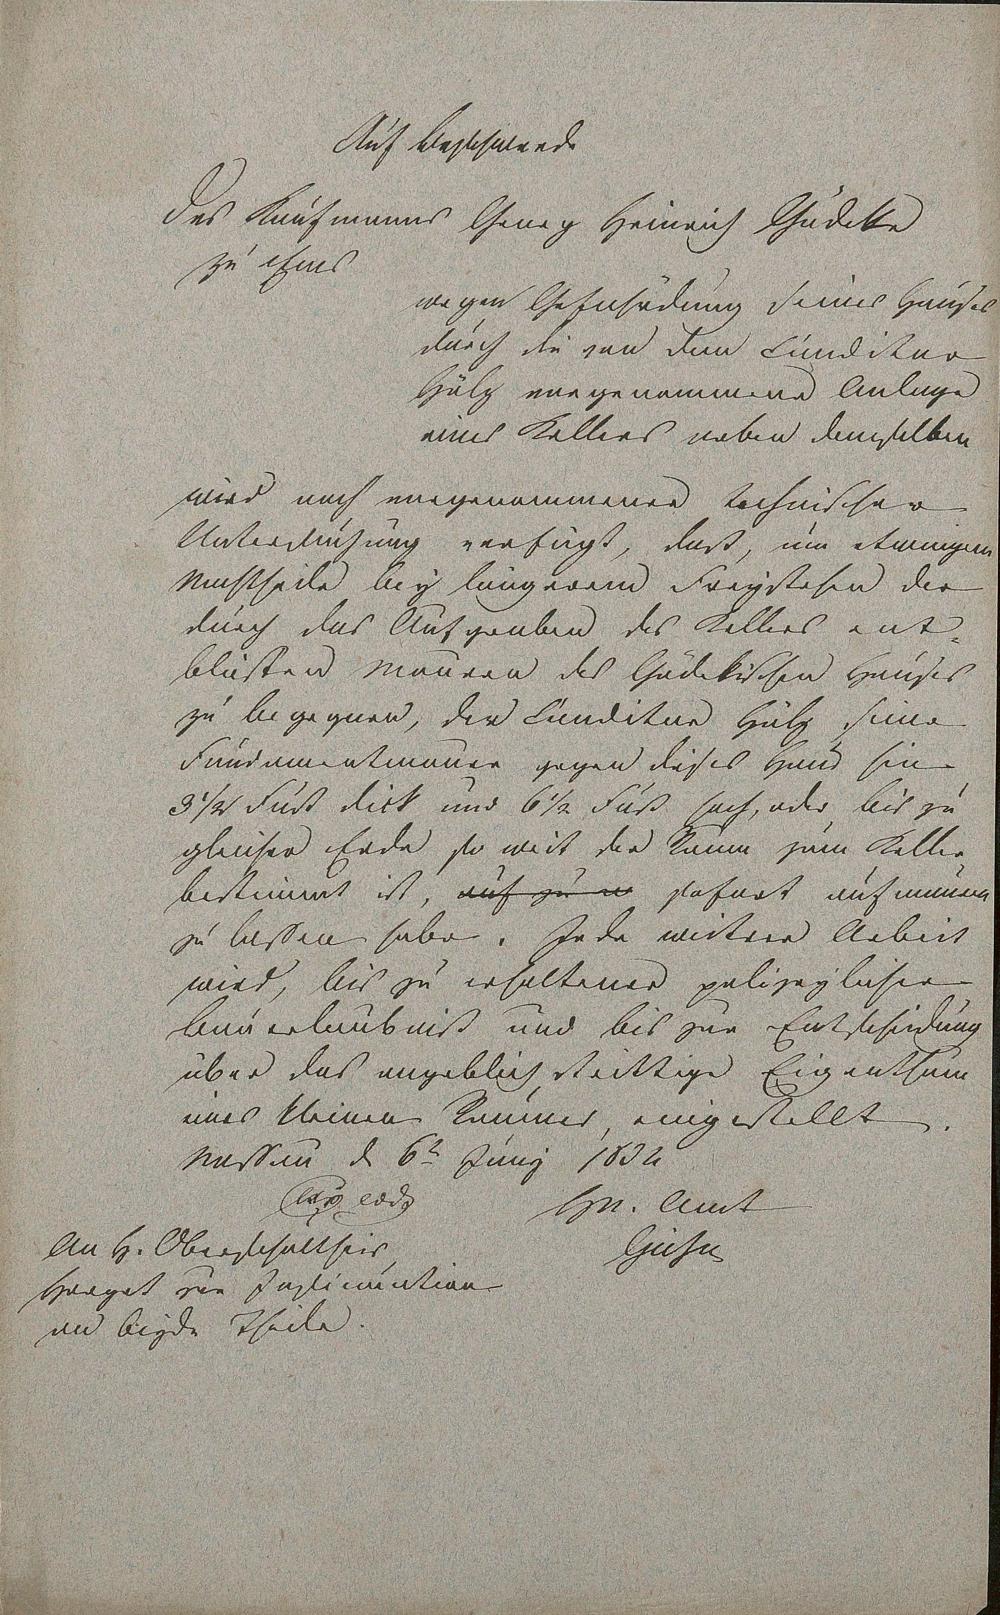 Auf Beschwerde
des Kaufmanns Georg Heinrich Gädeke
zu Ems
wegen Gefährdung seines Hauses
durch die von dem Conditor
Hölz vorgenommene Anlage
eines Kellers neben demselben
wird nach vorgenommener technischer
Untersuchung verfügt, daß, um etwaigen
Nachtheile bey längerem Freystehen der
durch das Aufgraben des Kellers ent-
blösten Mauern des Gädekischen Hauses
zu begegnen, der Conditor Hölz seine
Fundamentmauer gegen dieses Haus hin
3 1/2 Fuß dick und 6 1/2 Fuß hoch, oder bis zu
gleicher Erde so weit der Raum zum Keller
bestimmt ist, auf zu sofort aufmauern
zu lassen habe. Jede weitere Arbeit
wird, bis zu erhaltener polizeylicher
Bauerlaubniß und bis zur Entscheidung
über das angeblich streittige Eigenthum
eines kleinen Raumes, eingestellt.
Nassau d 6t Juny 1832
Hzl. Amt
An H. Oberschultheis
zur Insinuation
an beyde Theile.